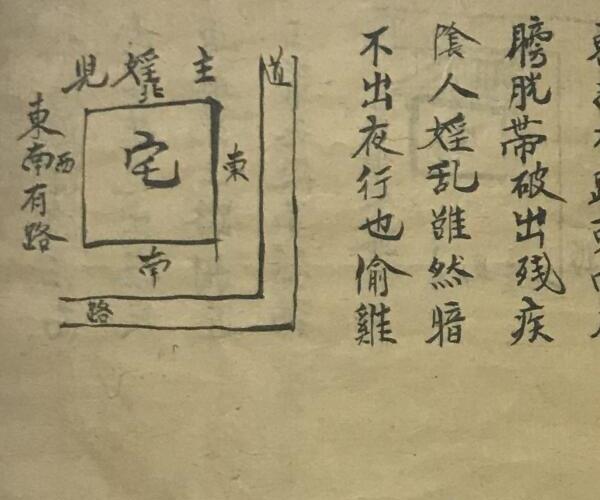 膀胱帶破出残疾
陰人婬乱雖然暗
不出夜行也偷雞
主婬見
道
北
宅
東
西
南
東南有路
路